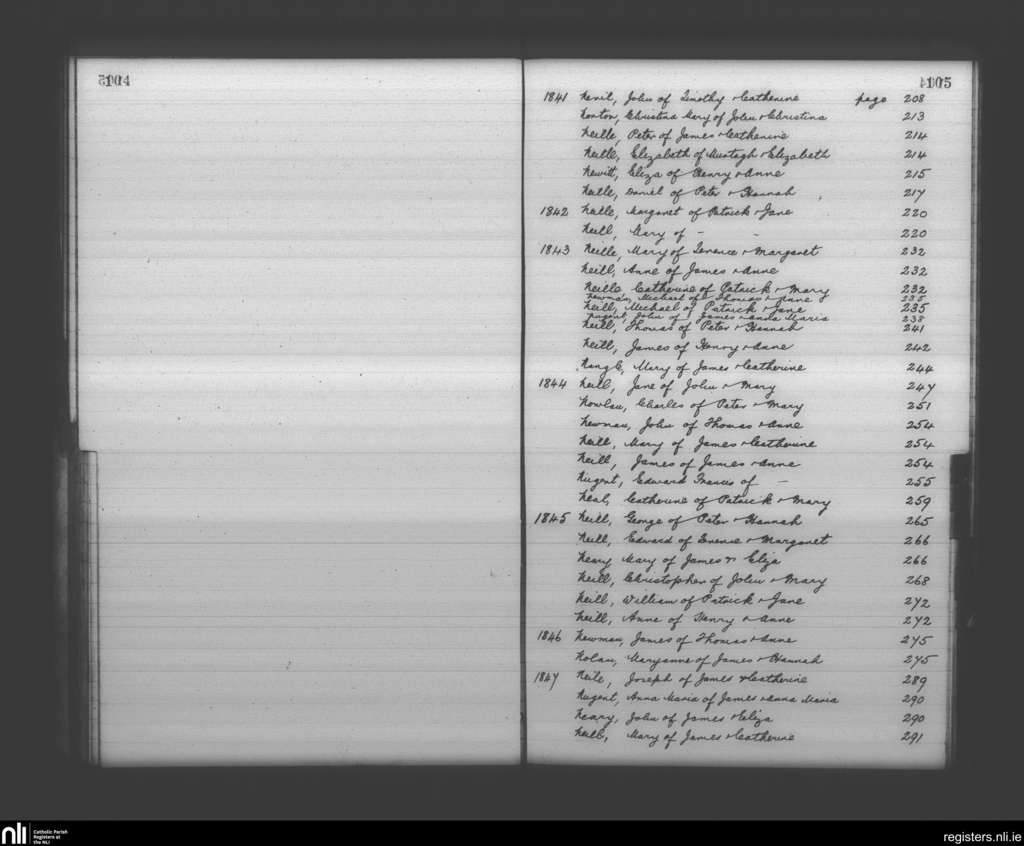 1841 Nevil, John of Timothy & Catherine page 208
Norton, Christina Mary of John & Christina 213
Neille, Peter of James & Catherine 214
Neille, Elizabeth of Murtagh & Elizabeth 214
Newitt, Eliza of Henry & Anne 215
Neille, Daniel of Peter & Hannah 217
1842 Neille, Margaret of Patrick & Jane 220
Neill, Mary of - - 220
1843 Neille, Mary of Terence & Margaret 232
Neill, Anne of James & Anne 232
Neille Catherine of Patrick & Mary 232
Newman, Michael of Thomas & Anne 235
Neill, Michael of Patrick & Jane 235
Nugent, John of James & Anna Maria 238
Neill, Thomas of Peter & Hannah 241
Neill, James of Henry & Anne 242
Nangle, Mary of James & Catherine 244
1844 Neill, Jane of John & Mary 247
Nowlan, Charles of Peter & Mary 251
Newman, John of Thomas & Anne 254
Neill, Mary of James & Catherine 254
Neill, James of James & Anne 254
Nugent, Edward Francis of - 255
Neal, Catherine of Patrick & Mary 259
1845 Neill, George of Peter & Hannah 265
Neill, Edward of Terence & Margaret 266
Neary Mary of James & Eliza 266
Neill, Christopher of John & Mary 268
Neill, William of Patrick & Jane 272
Neill, Anne of Henry & Anne 272
1846 Newman, James of Thomas & Anne 275
Nolan, Maryanne of James & Hannah 275
1847 Neile, Joseph of James & Catherine 289
Nugent, Anna Maria of James & Anna Maria 290
Neary, John of James & Eliza 290
Neill, Mary of James & Catherine 291
nli Catholic Parish
Registers at
the NLI
registers.nli.ie